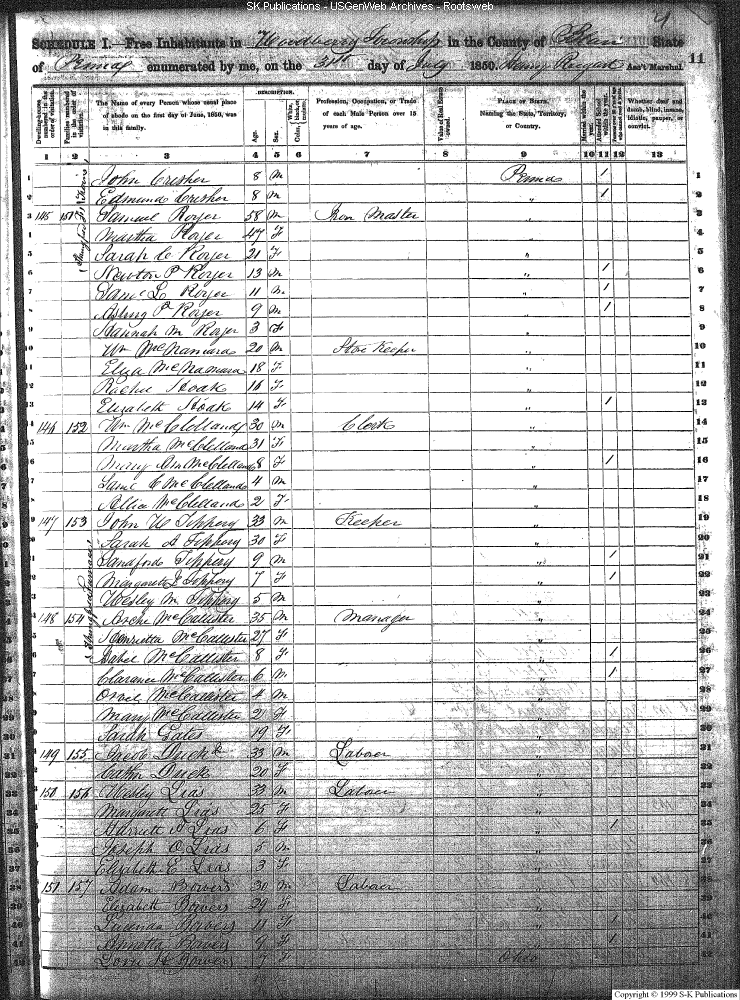 SK Publications - USGenWeb Archives - Rootsweb
SCHEDULE I.—Free Inhabitants in Woodberry Township in the County of Blair State
of Penna enumerated by me, on the 31st day of July 1850. Ass't Marshal. 11
Dwelling-houses numbered in the order of visitation.
Families numbered in the order of visitation.
The Name of every Person whose usual place of abode on the first day of June, 1850, was in this family.
DESCRIPTION.
Age.
Sex.
Color, White, black, or mulatto.
Profession, Occupation, or Trade of each Male Person over 15 years of age.
Value of Real Estate owned.
PLACE OF BIRTH. Naming the State, Territory, or Country.
Married within the year.
Attended School within the year.
Whether deaf and dumb, blind, insane, idiotic, pauper, or convict.
1 2 3 4 5 6 7 8 9 10 11 12 13
1 John Crisher 8 M Penna / 1
2 Edmund Crisher 8 M " / 2
3 145 151 Samuel Royer 58 M Iron Master " 3
Martha Royer 47 F " 4
Sarah C Royer 21 F " 5
6 Newton P Royer 13 M " / 6
7 Saml L Royer 11 M " / 7
8 Asbury P Royer 9 M " / 8
9 Hannah M Royer 3 F " 9
10 Wm McNamara 20 M Stoe Keeper " 10
11 Eliza McNamara 18 F " 11
12 Rachel Stoak 16 F " 12
13 Elizabeth Stoak 14 F " / 13
146 152 Wm McClelland 30 M Clerk " 14
Martha McClelland 31 F " 15
Mary Ann McClelland 8 F " / 16
Saml C McClelland 4 M " 17
Allice McClelland 2 F " 18
147 153 John W Tippery 33 M Keeper " 19
Sarah A Tippery 30 F " 20
Sandford Tippery 9 M " / 21
Margarett J Tippery 7 F " / 22
Wesley M Tippery 5 M " 23
148 154 McCallister 35 M Manager " 24
Henrietta McCallister 27 F " 25
Isabel McCallister 8 F " / 26
Clarance McCallister 6 M " / 27
Orvil McCallister 4 M " 28
Mary McCallister 2 F " 29
Sarah Gates 19 F " 30
149 155 Jacob Duck 33 M Laboer " 31
Duck 20 F " 32
150 156 Wesley Lias 33 M Laboer " 33
Margarett Lias 25 F " 34
Harriett A Lias 6 F " / 35
Joseph O Lias 5 M " 36
Elizabeth E Lias 3 F " 37
151 157 Adam Bowers 30 M Laboer " 38
Elizabeth Bowers 29 F " 39
Lucenda Bowers 11 F " / 40
Annetta Bowers 9 F " / 41
Bowers 7 F Ohio 42
Copyright © 1999 S-K Publications